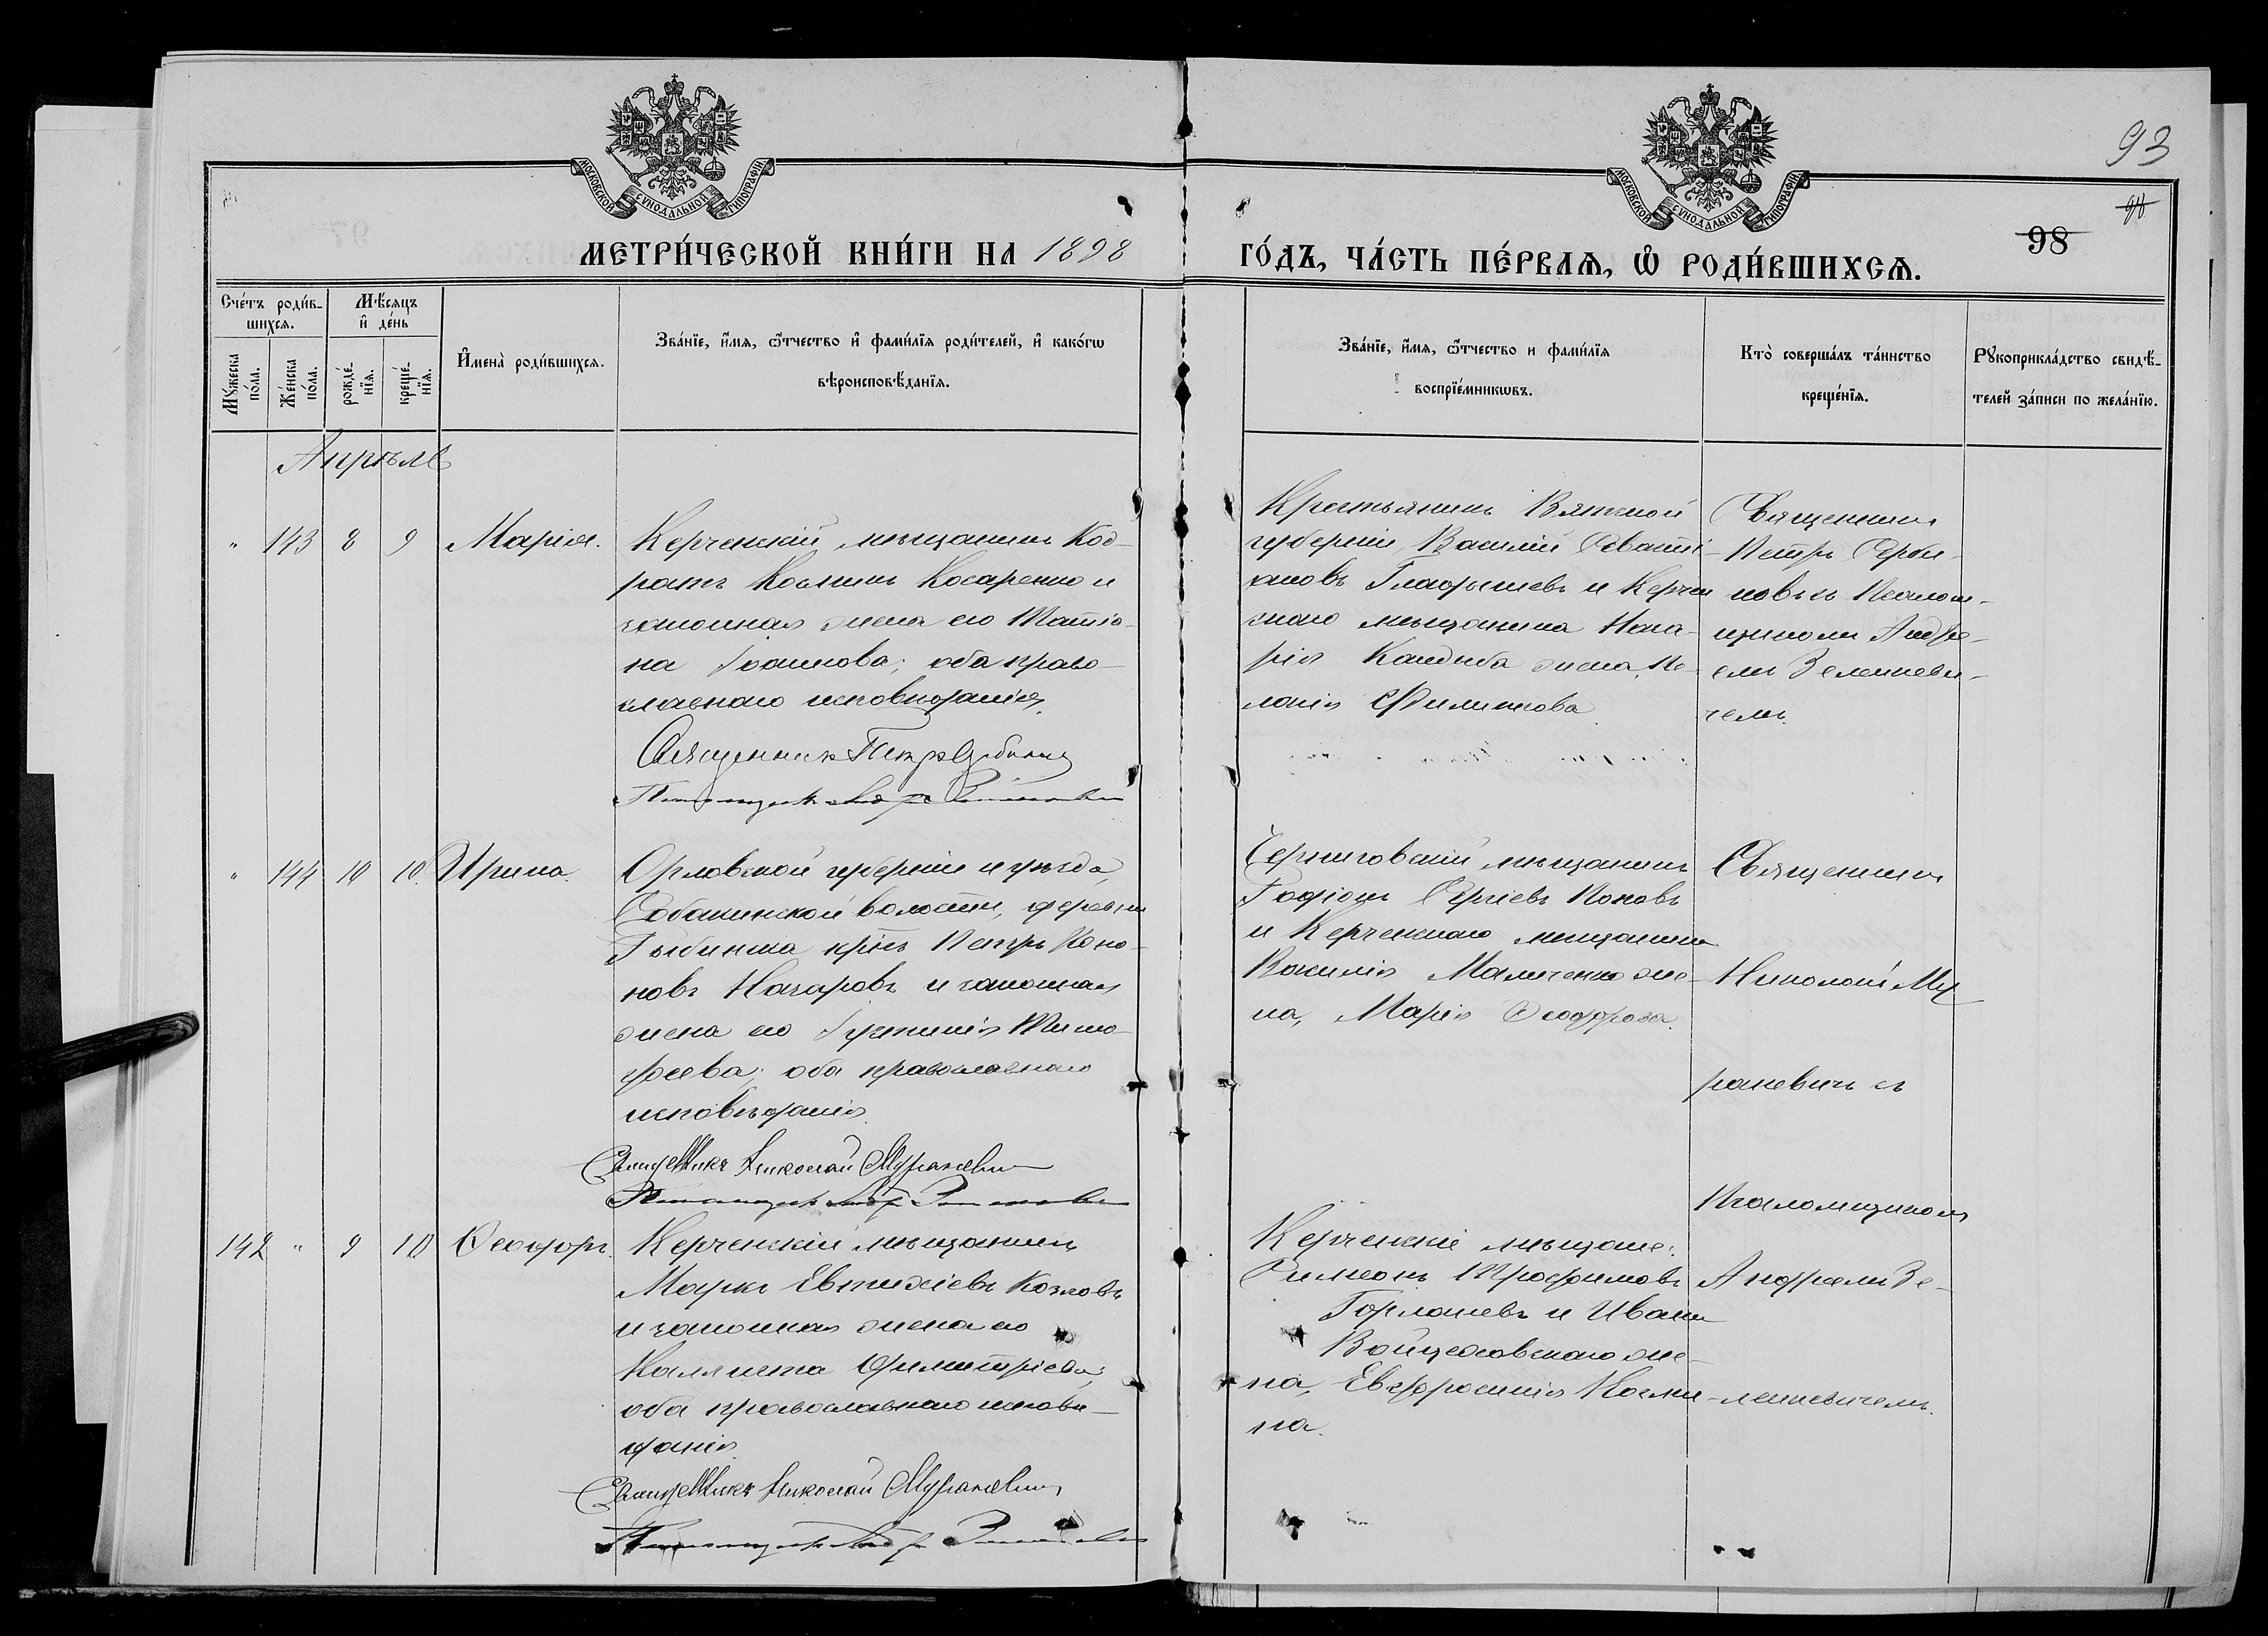 93
98
МОСКОВСКОЙ СУНОДАЛЬНОЙ ТИПОГРАФІИ
МОСКОВСКОЙ СУНОДАЛЬНОЙ ТИПОГРАФІИ
МЕТРИ́ЧЕСКОЙ КНИ́ГИ НА 1898
ГО́ДЪ, ЧА́СТЬ ПЕ́РВАѦ, Ѡ҆ РОДИ́ВШИХСѦ.
Сче́тъ роди́в-
шихсѧ.
Мѣ́сѧцъ
и҆ де́нь
Мꙋ́жеска по́ла.
Же́нска по́ла.
рожде́нїѧ.
креще́нїѧ.
И҆мена̀ роди́вшихсѧ.
Зва́нїе, и҆́мѧ, ѻ҆́тчество и҆ фами́лїѧ роди́телей, и҆ како́гѡ
вѣроисповѣ́данїѧ.
Зва́нїе, и҆́мѧ, ѻ҆́тчество и фами́лїѧ
воспрїе́мникѡвъ.
Кто̀ соверша́лъ та́инство
креще́нїѧ.
Рꙋкоприкла́дство свидѣ́-
телей за́писи по жела́нїю.
Апрѣль
" 143 8 9 Марія.
Керченскій мѣщанинъ Код-
ратъ Косминъ Косаренко и
законная жена его Татіа-
на Іоаннова; оба право-
славнаго исповѣданія.
Священникъ Петръ Сербиновъ
Крестьянинъ Вятской
губерніи Василій Севасті-
ановъ и Керчен
скаго мѣщанина Наза-
рія Кандыба жена, Пе-
лагія Филиппова
Священникъ
Петръ Серби-
новъ съ Псалом-
щикомъ Андре-
емъ Зеленкеви-
чемъ.
" 144 10 10. Ирина.
Орловской губерніи и уѣзда,
Собакинской волости, деревни
крнъ Петръ Коно-
новъ Назаровъ и законная
жена его Іустинія Тимо-
феева; оба православнаго
исповѣданія.
Священникъ Николай Мураневичъ
Черниговскій мѣщанинъ
Родіонъ Сергіевъ Поповъ
и Керченскаго мѣщанина
Василія Маличенко же-
на, Марія Феодорова.
Священникъ
Николай Му
раневичъ съ
Псаломщикомъ
Андреемъ Зе-
ленкевичемъ.
142 " 9 10 Феодоръ.
Керченскій мѣщанинъ
Маркъ Евтихіевъ Козловъ
и законная жена его
Каллиста Димитріева;
оба православнаго исповѣ-
данія.
Священникъ Николай Мураневичъ
Керченскіе мѣщане:
Симеонъ Трофимовъ
Горлачевъ и Ивана
Войцеховскаго же-
на, Евфросинія Косми-
на.